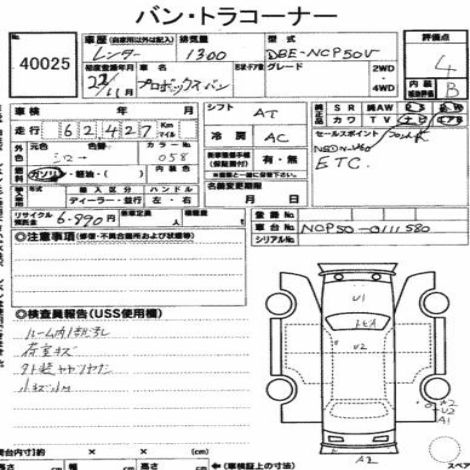 バン・トラコーナー
No. 40025
車歴(自家用以外は記入) レンター
排気量 1300
型式 DBE-NCP50V
評価点 4
初度登録年月 22/11月
車名 プロボックスバン
形状・ドア数
グレード
2WD
4WD
内装 B
車検 年 月
シフト AT
純正品
SR 純AW PS PW
カワ TV ナビ エアB
走行 62427 Km マイル
冷房 AC
セールスポイント
ETC.
外色 元色 シロー 色替 カラーNo. 058
有・無
燃料 ガソリン・軽油・( ) 内装色
名義変更期限
月 日
輸入車 年式 輸入区分 ハンドル
ディーラー・並行 左・右
リサイクル預託金 6.890円
乗車定員 人
積載量 t
登録No.
車台No. NCP50-0111580
シリアルNo.
◎注意事項(修復・不具合箇所および状態等)
◎検査員報告(USS使用欄)
荷室キズ
U1
トビA
U2
A2
U2
A1
A2
荷台内寸法 × × (cm)
高さ cm 幅 cm 高さ cm ←(車検証上の寸法)
スペア